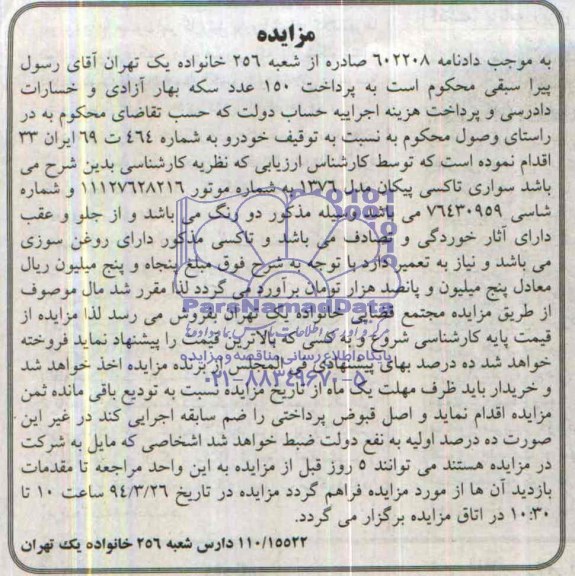 مزایده
به موجب دادنامه ۶۰۲۲۰۸ صادره از شعبه ۲۵۶ خانواده یک تهران آقای رسول
پیرا سبقی محکوم است به پرداخت ۱۵۰ عدد سکه بهار آزادی و خسارات
دادرسی و پرداخت هزینه اجراییه حساب دولت که حسب تقاضای محکوم به در
راستای وصول محکوم به نسبت به توقیف خودرو به شماره ۴۶۴ ت ۶۹ ایران ۳۳
اقدام نموده است که توسط کارشناس ارزیابی که نظریه کارشناسی بدین شرح می
باشد سواری تاکسی پیکان مدل ۱۳۷۶ به شماره موتور ۱۱۱۲۷۶۲۸۲۱۶ و شماره
شاسی ۷۶۴۳۰۹۵۹ می باشد وسیله مذکور دو رنگ می باشد و از جلو و عقب
دارای آثار خوردگی و تصادف می باشد و تاکسی مذکور دارای روغن سوزی
می باشد و نیاز به تعمیر دارد با توجه به شرح فوق مبلغ پنجاه و پنج میلیون ریال
معادل پنج میلیون و پانصد هزار تومان برآورد می گردد لذا مقرر شد مال موصوف
از طریق مزایده مجتمع قضایی خانواده یک تهران بفروش می رسد لذا مزایده از
قیمت پایه کارشناسی شروع و به کسی که بالاترین قیمت را پیشنهاد نماید فروخته
خواهد شد ده درصد بهای پیشنهادی فی المجلس از برنده مزایده اخذ خواهد شد
و خریدار باید ظرف مهلت یک ماه از تاریخ مزایده نسبت به تودیع باقی مانده ثمن
مزایده اقدام نماید و اصل قبوض پرداختی را ضم سابقه اجرایی کند در غیر این
صورت ده درصد اولیه به نفع دولت ضبط خواهد شد اشخاصی که مایل به شرکت
در مزایده هستند می توانند ۵ روز قبل از مزایده به این واحد مراجعه تا مقدمات
بازدید آن ها از مورد مزایده فراهم گردد مزایده در تاریخ ۹۴/۳/۲۶ ساعت ۱۰ تا
۱۰:۳۰ در اتاق مزایده برگزار می گردد.
۱۱۰/۱۵۵۲۲ دارس شعبه ۲۵۶ خانواده یک تهران
ParsNamadData
پایگاه اطلاع رسانی مناقصه و مزایده
۰۲۱-۸۸۳۴۹۶۷۰-۵